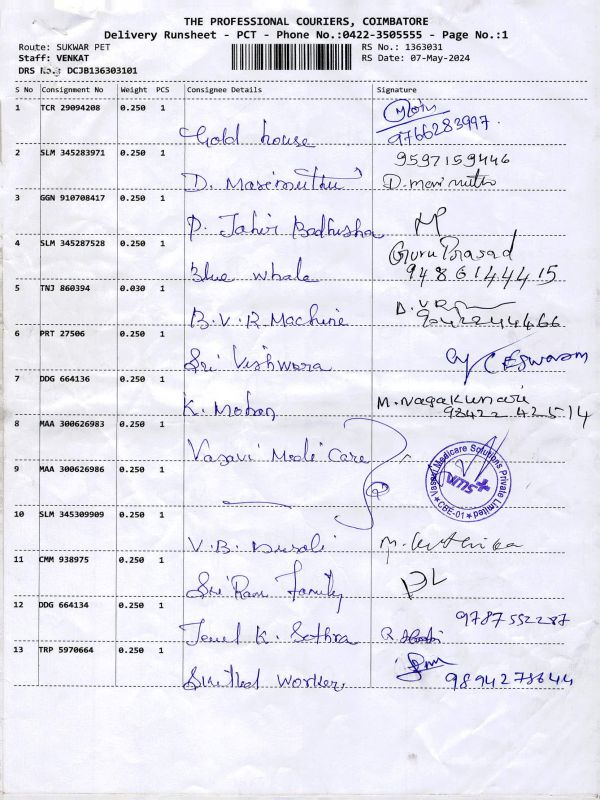 THE PROFESSIONAL COURIERS, COIMBATORE
Delivery Runsheet - PCT - Phone No.:0422-3505555 - Page No.:1
Route: SUKWAR PET
RS No.: 1363031
Staff: VENKAT
RS Date: 07-May-2024
DRS No.: DCJB136303101
S No Consignment No Weight PCS Consignee Details Signature
1 TCR 29094208 0.250 1 Gold house
9766283997
2 SLM 345283971 0.250 1 D. Marimuthu
9597159446
D. marimuthu
3 GGN 910708417 0.250 1 P. Jahir Badhusha
4 SLM 345287528 0.250 1 Blue whale
Guru Prasad
9486144415
5 TNJ 860394 0.030 1 B.V.R Machine
6 PRT 27506 0.250 1 Sri Vishwara
C Eswaram
7 DDG 664136 0.250 1 K. Mohan
M. Nagakumari
98422 42514
8 MAA 300626983 0.250 1 Vasavi Medi Care
Vasavi Medicare Solutions Private Limited
wms+
* CBE-01 *
9 MAA 300626986 0.250 1
10 SLM 345309909 0.250 1 V.B.
11 CMM 938975 0.250 1 Sri Ram Family
12 DDG 664134 0.250 1 K.
9787552287
R.
13 TRP 5970664 0.250 1 worker
9894278644